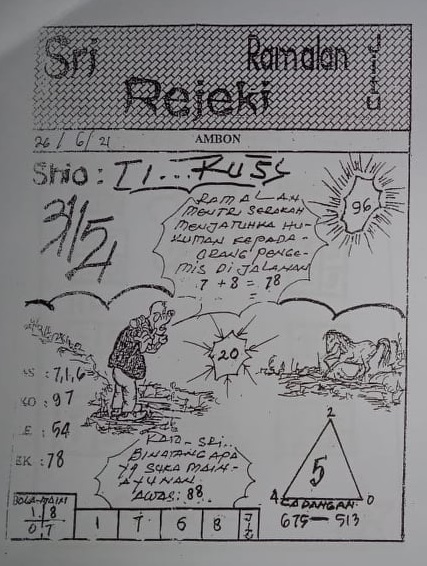 Sri Ramalan Jitu
Rejeki
26/6/21 AMBON
Shio: TI...KUS
96
RAMALAN
MENTRI SERAKAH
MENJATUHKAN HU-
KUMAN KEPADA-
ORANG PENGE-
MIS DI JALANAN
7 + 8 = 78
=
20
AS : 7,1,6
KO : 97
E : 54
EK : 78
KATA-SRI..
BINATANG APA
YG SUKA MAIN-
AYUNAN.
AWAS: 88
2
5
4 0
CADANGAN
675 — 513
BOLA-MAIN
1 8
0 7
1 7 6 8 JITU